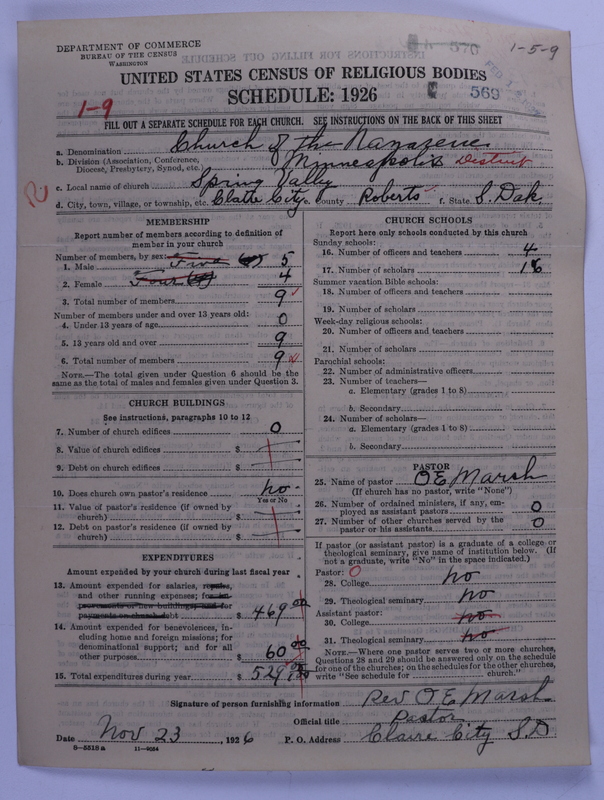 DEPARTMENT OF COMMERCE
BUREAU OF THE CENSUS
WASHINGTON
570
1-5-9
UNITED STATES CENSUS OF RELIGIOUS BODIES
SCHEDULE: 1926
569
1-9
FILL OUT A SEPARATE SCHEDULE FOR EACH CHURCH. SEE INSTRUCTIONS ON THE BACK OF THIS SHEET
a. Denomination Church of the Nazarene
b. Division (Association, Conference, Diocese, Presbytery, Synod, etc.) Minneapolis District
c. Local name of church Spring Valley
d. City, town, village, or township, etc. Claire City e. County Roberts f. State S. Dak.
MEMBERSHIP
Report number of members according to definition of
member in your church
Number of members, by sex:
1. Male Five (5) 5
2. Female Four (4) 4
3. Total number of members 9
Number of members under and over 13 years old:
4. Under 13 years of age 0
5. 13 years old and over 9
6. Total number of members 9
NOTE.—The total given under Question 6 should be the
same as the total of males and females given under Question 3.
CHURCH BUILDINGS
See instructions, paragraphs 10 to 12
7. Number of church edifices 0
8. Value of church edifices $
9. Debt on church edifices $
10. Does church own pastor's residence no
Yes or No
11. Value of pastor's residence (if owned by
church) $
12. Debt on pastor's residence (if owned by
church) $
EXPENDITURES
Amount expended by your church during last fiscal year
13. Amount expended for salaries, repairs,
and other running expenses; for im-
provements or new buildings; and for
payments on church debt $ 469 00
14. Amount expended for benevolences, in-
cluding home and foreign missions; for
denominational support; and for all
other purposes $ 60 00
15. Total expenditures during year $ 529 00
CHURCH SCHOOLS
Report here only schools conducted by this church
Sunday schools:
16. Number of officers and teachers 4
17. Number of scholars 16
Summer vacation Bible schools:
18. Number of officers and teachers
19. Number of scholars
Week-day religious schools:
20. Number of officers and teachers
21. Number of scholars
Parochial schools:
22. Number of administrative officers
23. Number of teachers—
a. Elementary (grades 1 to 8)
b. Secondary
24. Number of scholars—
a. Elementary (grades 1 to 8)
b. Secondary
PASTOR
25. Name of pastor O E Marsh
(If church has no pastor, write "None")
26. Number of ordained ministers, if any, em-
ployed as assistant pastors 0
27. Number of other churches served by the
pastor or his assistants 0
If pastor (or assistant pastor) is a graduate of a college or
theological seminary, give name of institution below. (If
not a graduate, write "No" in the space indicated.)
Pastor: 0
28. College no
29. Theological seminary no
Assistant pastor:
30. College no
31. Theological seminary no
NOTE.—Where one pastor serves two or more churches,
Questions 28 and 29 should be answered only on the schedule
for one of the churches; on the schedules for the other churches,
write "See schedule for church."
Signature of person furnishing information Rev O E Marsh
Official title Pastor
Date Nov 23, 1926 P. O. Address Claire City S.D
8-5518 a 11-9054